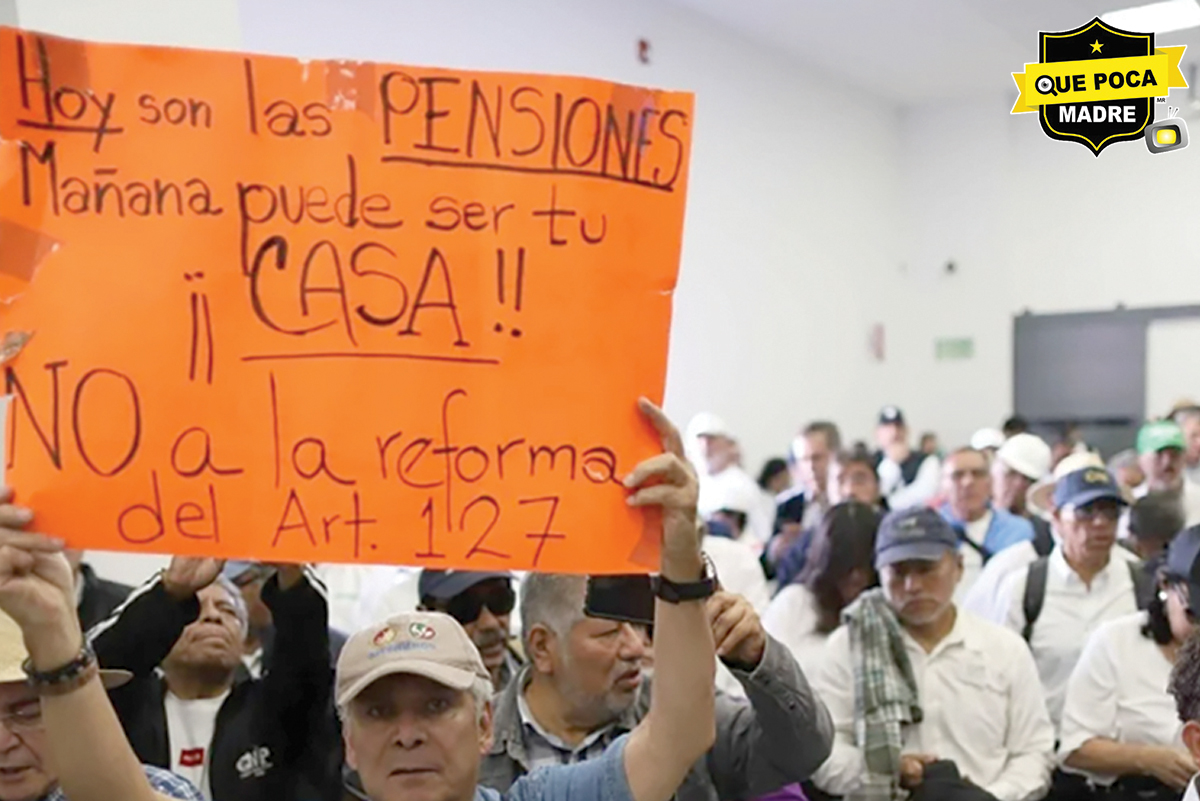 Hoy son las PENSIONES
Mañana puede ser tu
¡¡ CASA !!
NO a la reforma
del Art. 127
QUE POCA
MADRE
MR